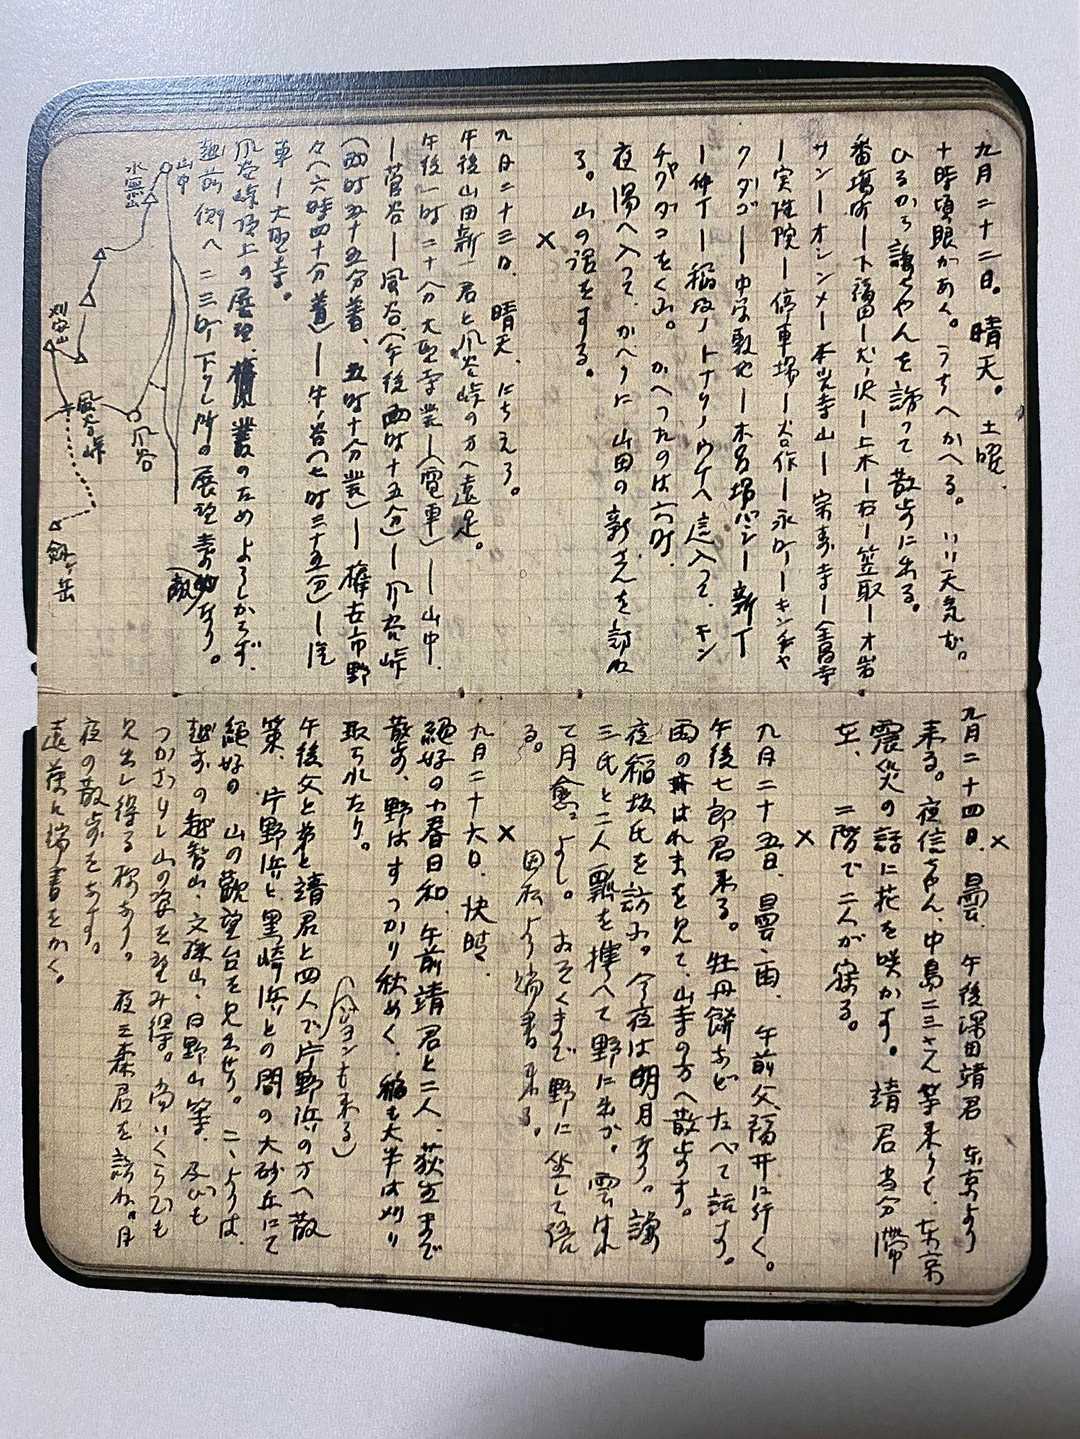 九月二十二日。晴天。土曜、
十時頃眼があく。うちへかへる。いい天気だ。
ひるから譲ちやんを誘つて散歩に出る。
番場町ー下福田ー犬ノ沢ー上木ー右ー笠取ーオ岩
サンーオシンメー本光寺山ー宗寿寺ー全昌寺
ー実性院ー停車場ー合作ー永町ーキンチヤ
クダゴー中学敷地ー木呂場バシー新丁
ー仲丁ー稲坂ノトナリノウケヘ這入つて、キン
チヤクダゴをくふ。かへつたのは六時、
夜湯へ入つて、かへりに山田の新さんを訪ね
る。山の話をする。
×
九月二十三日、晴天、にちえう。
午後山田新一君と風谷峠の方へ遠足。
午後一時二十八分大聖寺発ー(電車)ー山中、
ー菅谷ー風谷(午後四時十五分)ー風谷峠
(四時五十五分着、五時十分発)ー権古市野
々(六時四十分着)ー牛ノ谷(七時三十五分)ー汽
車ー大聖寺。
風谷峠頂上の展望、樹叢のためよろしからず、
越前側へ二三町下りし所の展望素的なり。
(敵)
山中
水無山
刈安山
風谷峠
風谷
劔ヶ岳
×
九月二十四日、曇、午後深田靖君東京より
来る。夜信ちやん、中島二三さん等来りて、東京
震災の話に花を咲かす。靖君当分滞
在、二階で二人が寝る。
×
九月二十五日、曇、雨、午前父福井に行く。
午後七郎君来る。牡丹餅などたべて話す。
雨のはれまを見て、山寺の方へ散歩す。
夜稲坂氏を訪ふ。今夜は明月なり。譲
三氏と二人瓢を携へて野に出か。雲はれ
て月愈々よし。おそくまで野に坐して語
る。
因私より端書来る。
×
九月二十六日、快晴、
絶好の小春日和、午前靖君と二人、荻生まで
散歩、野はすつかり秋めく、稲も大半は刈り
取られたり。
午後父と弟と靖君と四人で片野浜の方へ散
(ハルヨシも来る)
策、片野浜と黒崎浜との間の大砂丘にて
絶好の山の観望台を見出せり。こゝよりは、
越前の越智山、文珠山、日野山等、及びも
つかざりし山の姿を望み得。尚いくらでも
見出し得る様あり。夜三森君を訪ね。月
夜の散歩をなす。
遠藤に端書をかく。